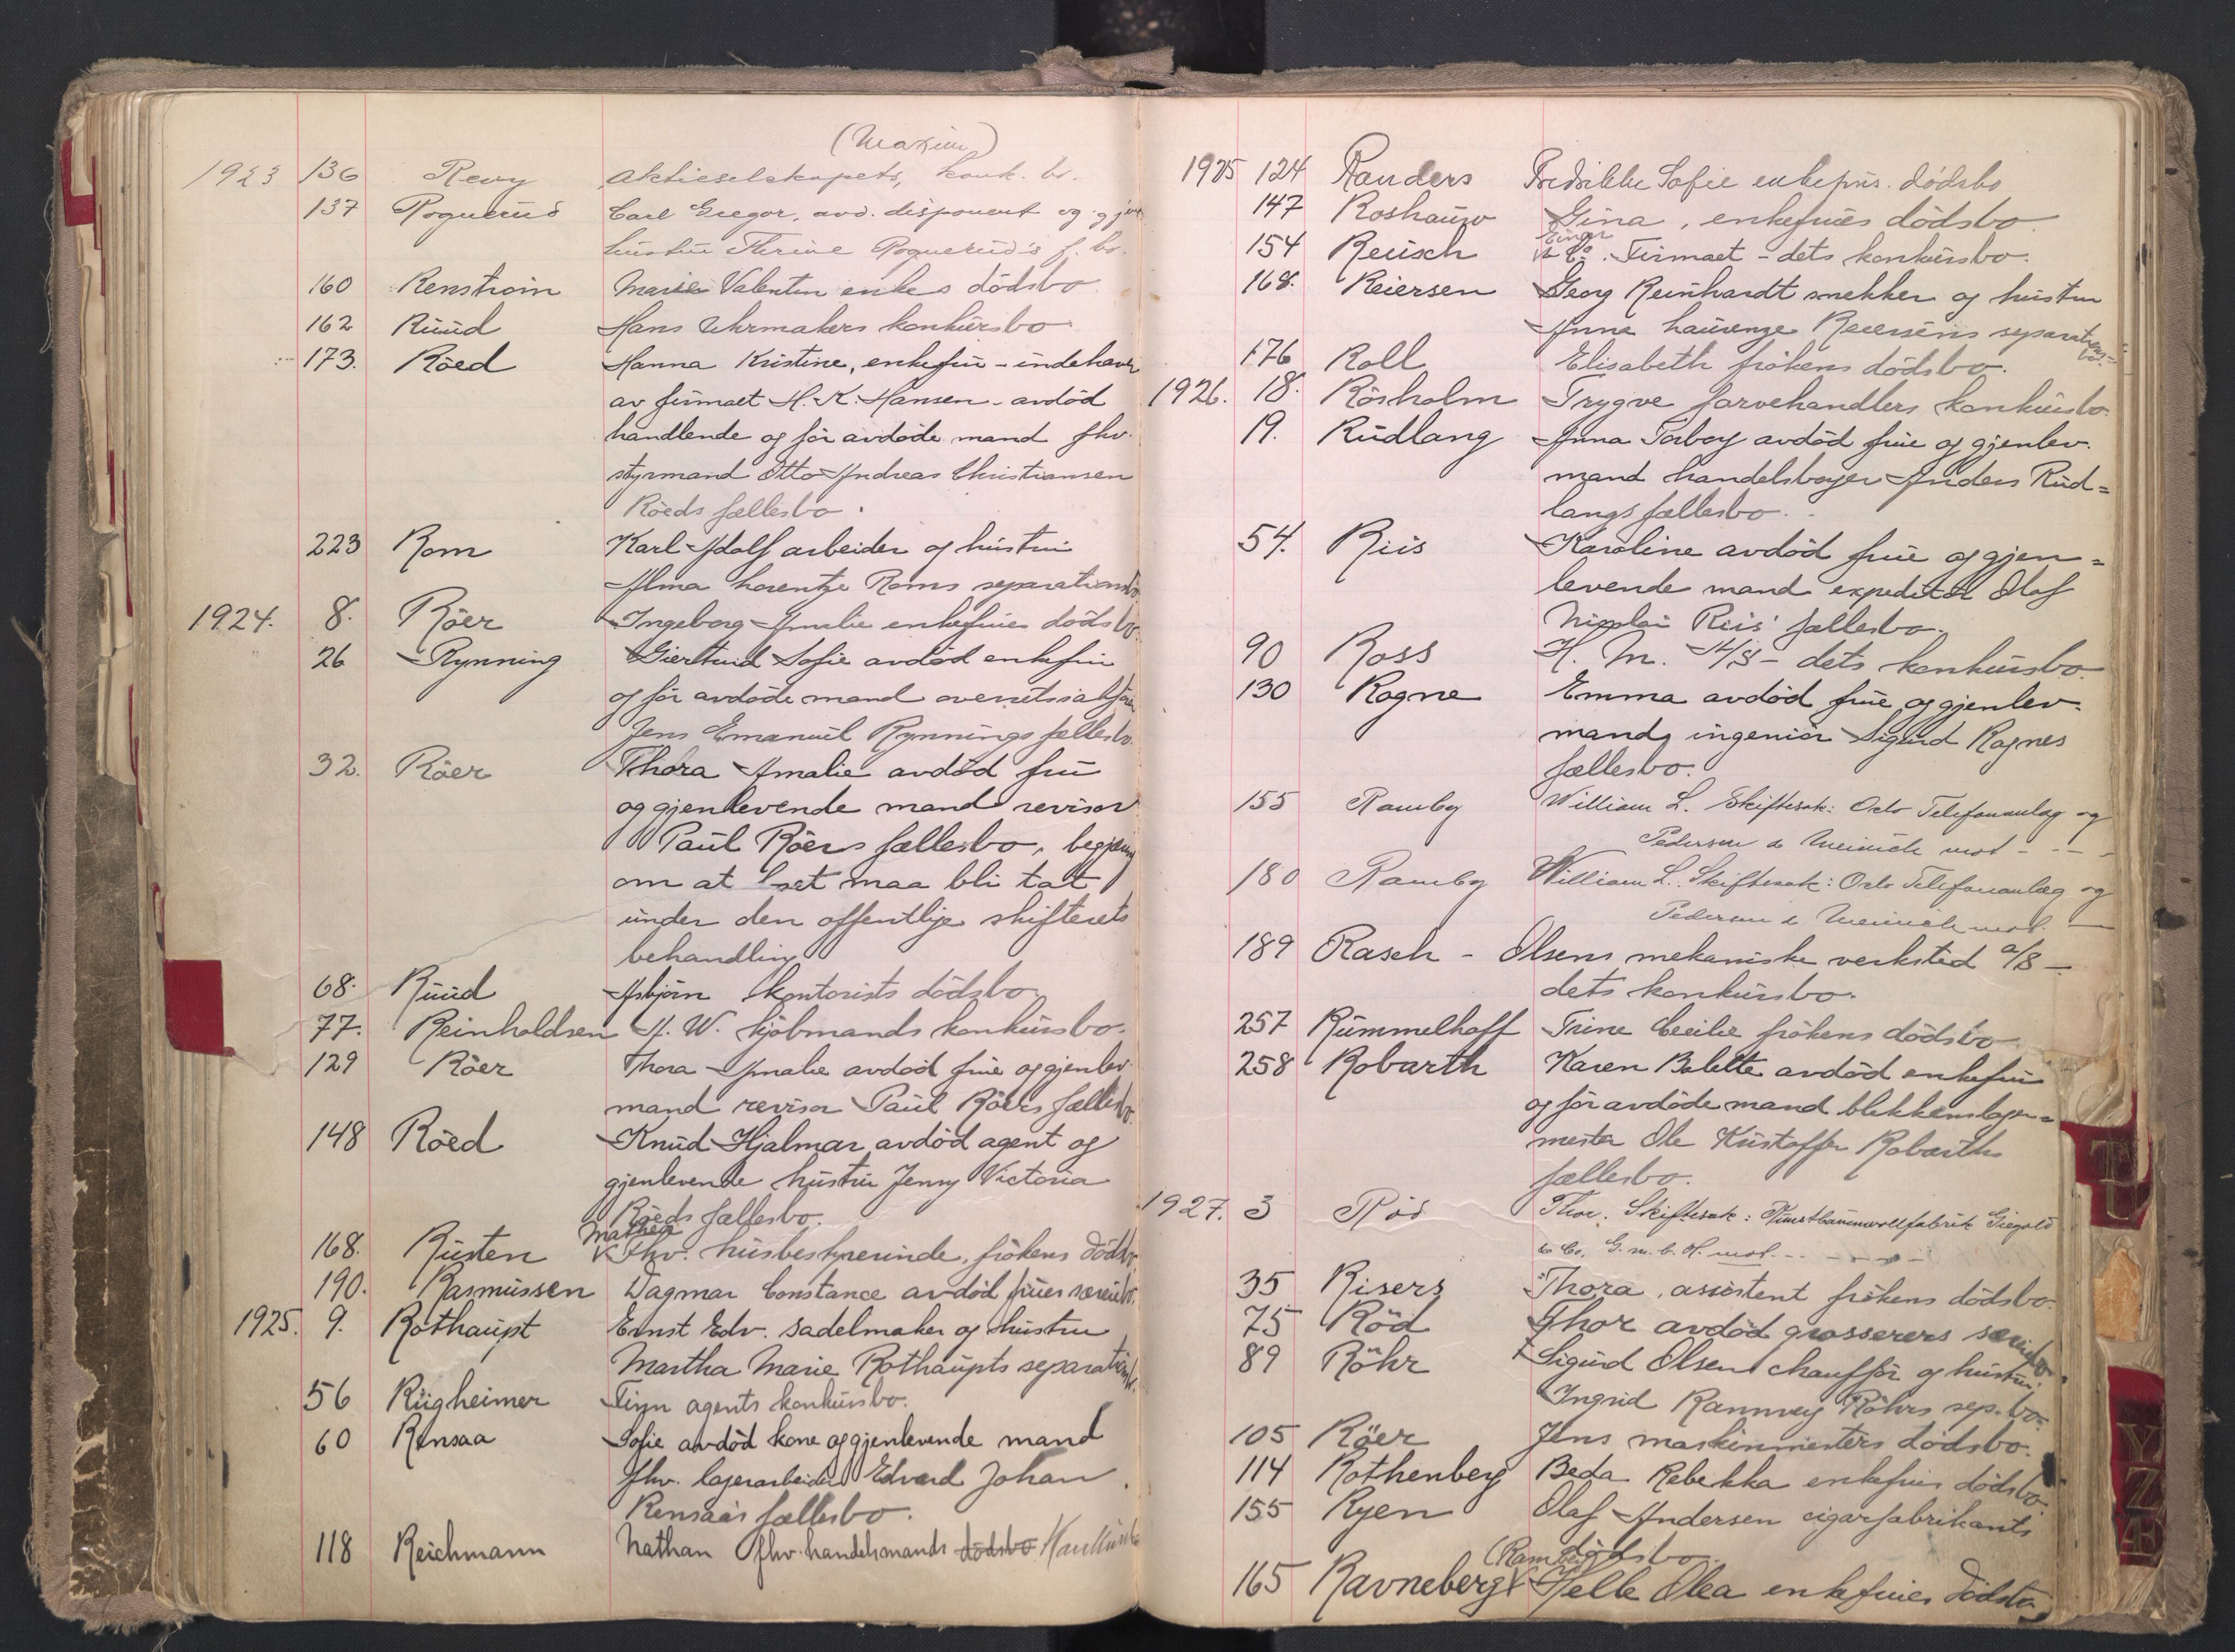 (Maxim)
1923 136 Revy Aktieselskapets, konk. bo.
137 Roguerud Carl Gregor, avd. disponent og gjen
hustru Thrine Roguerud's f. bo.
160 Renstrøm Marie Valentin enkes dødsbo
162 Ruud Hans Uhrmakers konkursbo
173. Röed Hanna Kristine, enkefru - indehaver
av firmaet H. K. Hansen - avdød
handlende og før avdøde mand fhv.
styrmand Otto Andreas Christiansen
Röeds fællesbo.
223 Rom Karl Adolf arbeider og hustru
Alma Lorentze Roms separationsbo
1924. 8. Röer Ingeborg Amalie enkefrues dødsbo.
26 Rynning Giertrud Sofie avdød enkefru
og før avdøde mand overretssakfører
Jens Emanuel Rynnings fællesbo.
32. Röer Thora Amalie avdød fru
og gjenlevende mand revisor
Paul Röers fællesbo, begjæring
om at boet maa bli tat
under den offentlige skifterets
behandling
68. Ruud Asbjørn kontorists dødsbo.
77. Reinholdsen H. W. kjøbmands konkursbo.
129 Röer Thora Amalie avdød frue og gjenlev.
mand revisor Paul Röers fællesbo.
148 Röed Knud Hjalmar avdød agent og
gjenlevende hustru Jenny Victoria
Röeds fællesbo.
Mathea
168. Rusten v fhv. husbestyrerinde, frøkens dødsbo.
190. Rasmussen Dagmar Constance avdød frues særeiebo.
1925. 9. Rothaupt Ernst Edv. sadelmaker og hustru
Martha Marie Rothaupts separationsb.
56 Rügheimer Finn agents konkursbo.
60 Rensaa Sofie avdød kone og gjenlevende mand
fhv. lagerarbeider Edvard Johan
Rensaas fællesbo.
118 Reichmann Nathan fhv. handelsmands dødsbo Konkursbo
1925 124 Randers Fredrikke Sofie enkefrus. dødsbo
147 Roshauw Gina, enkefrues dødsbo
Einar
154 Reusch & Co. Firmaet - dets konkursbo.
168. Reiersen Georg Reinhardt snekker og hustru
Anna Laurenze Reiersens separationsbo.
176 Roll Elisabeth frøkens dødsbo.
1926. 18. Rösholm Trygve farvehandlers konkursbo.
19. Rudlang Anna Torborg avdød frue og gjenlev.
mand handelsborger Anders Rud=
langs fællesbo.
54. Riis Karoline avdød frue og gjen=
levende mand expeditør Olaf
Nicolai Riis' fællesbo.
90 Ross H. M. A/S - dets konkursbo.
130 Rogne Emma avdød frue og gjenlev.
mand, ingeniør Sigurd Rognes
fællesbo.
155 Ramby William L. Skiftesak: Oslo Telefonanlæg og
Pedersen & Meinich mot - - -
180 Ramby William L. Skiftesak: Oslo Telefonanlæg og
Pedersen & Meinich mot. -
189 Rasch - Olsens mekaniske verksted A/S -
dets konkursbo.
257 Rummelhoff Trine Cecilie frøkens dødsbo
258 Robarth Karen Bolette avdød enkefru
og før avdøde mand blikkenslager=
mester Ole Kristoffer Robarths
fællesbo.
1927. 3 Rød Thor. Skiftesak: Kunstbaumwollfabrik Giegold
& Co. G. m. b. H. mot. - - - -
35 Risers Thora, assistent frøkens dødsbo.
75 Röd Thor avdød grosserers særeiebo.
89 Röhr Sigurd Olsen chauffør og hustru
Ingrid Rannveig Röhrs sep. bo.
105 Röer Jens maskinmesters dødsbo.
114 Rothenberg Beda Rebekka enkefrues dødsbo
155 Ryen Olaf Andersen cigarfabrikants
dødsbo.
(Ramberg)
165 Ravneberg v Helle Olea enkefrues dødsbo
TU
YZ
Æ